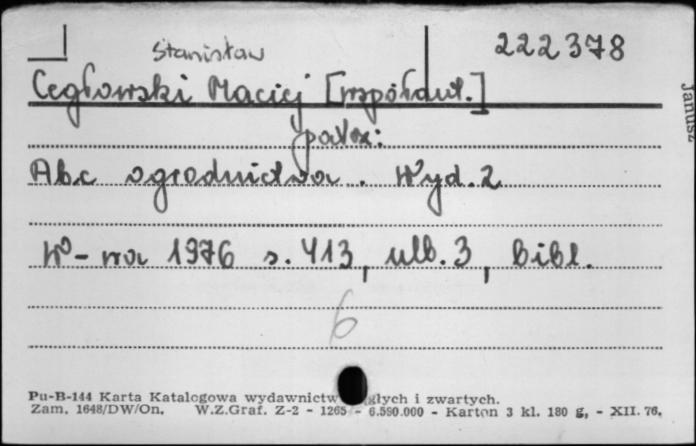 Stanisław 222378
Cegłowski Maciej [współaut.]
patrz:
Abc ogrodnictwa. Wyd. 2
W-wa 1976 s. 413, ulb. 3, bibl.
6
Pu-B-144 Karta Katalogowa wydawnictw głych i zwartych.
Zam. 1648/DW/On. W.Z.Graf. Z-2 - 1265 - 6.550.000 - Karton 3 kl. 180 g, - XII. 76.
Janusz